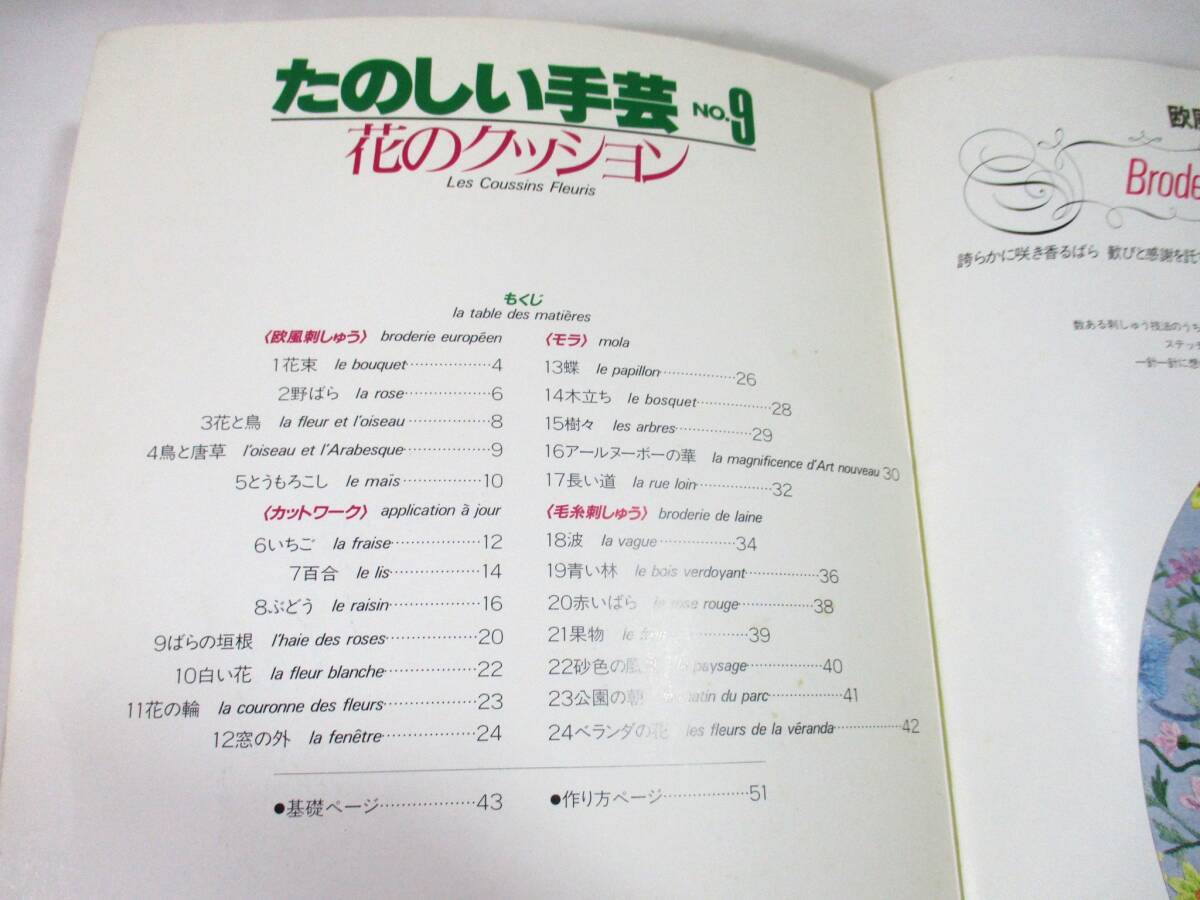 たのしい手芸 NO.9
花のクッション
Les Coussins Fleuris
もくじ
la table des matières
〈欧風刺しゅう〉 broderie européen
1花束 le bouquet………………4
2野ばら la rose………………6
3花と鳥 la fleur et l'oiseau………………8
4鳥と唐草 l'oiseau et l'Arabesque………………9
5とうもろこし le maïs………………10
〈カットワーク〉 application à jour
6いちご la fraise………………12
7百合 le lis………………14
8ぶどう le raisin………………16
9ばらの垣根 l'haie des roses………………20
10白い花 la fleur blanche………………22
11花の輪 la couronne des fleurs………………23
12窓の外 la fenêtre………………24
〈モラ〉 mola
13蝶 le papillon………………26
14木立ち le bosquet………………28
15樹々 les arbres………………29
16アールヌーボーの華 la magnificence d'Art nouveau 30
17長い道 la rue loin………………32
〈毛糸刺しゅう〉 broderie de laine
18波 la vague………………34
19青い林 le bois verdoyant………………36
20赤いばら la rose rouge………………38
21果物 le………………39
22砂色の風 paysage………………40
23公園の朝 matin du parc………………41
24ベランダの花 les fleurs de la véranda………………42
●基礎ページ………………43
●作り方ページ………………51
欧風
Brode
誇らかに咲き香るばら 歓びと感謝を託
数ある刺しゅう技法のうち
ステッチ
一針一針に想